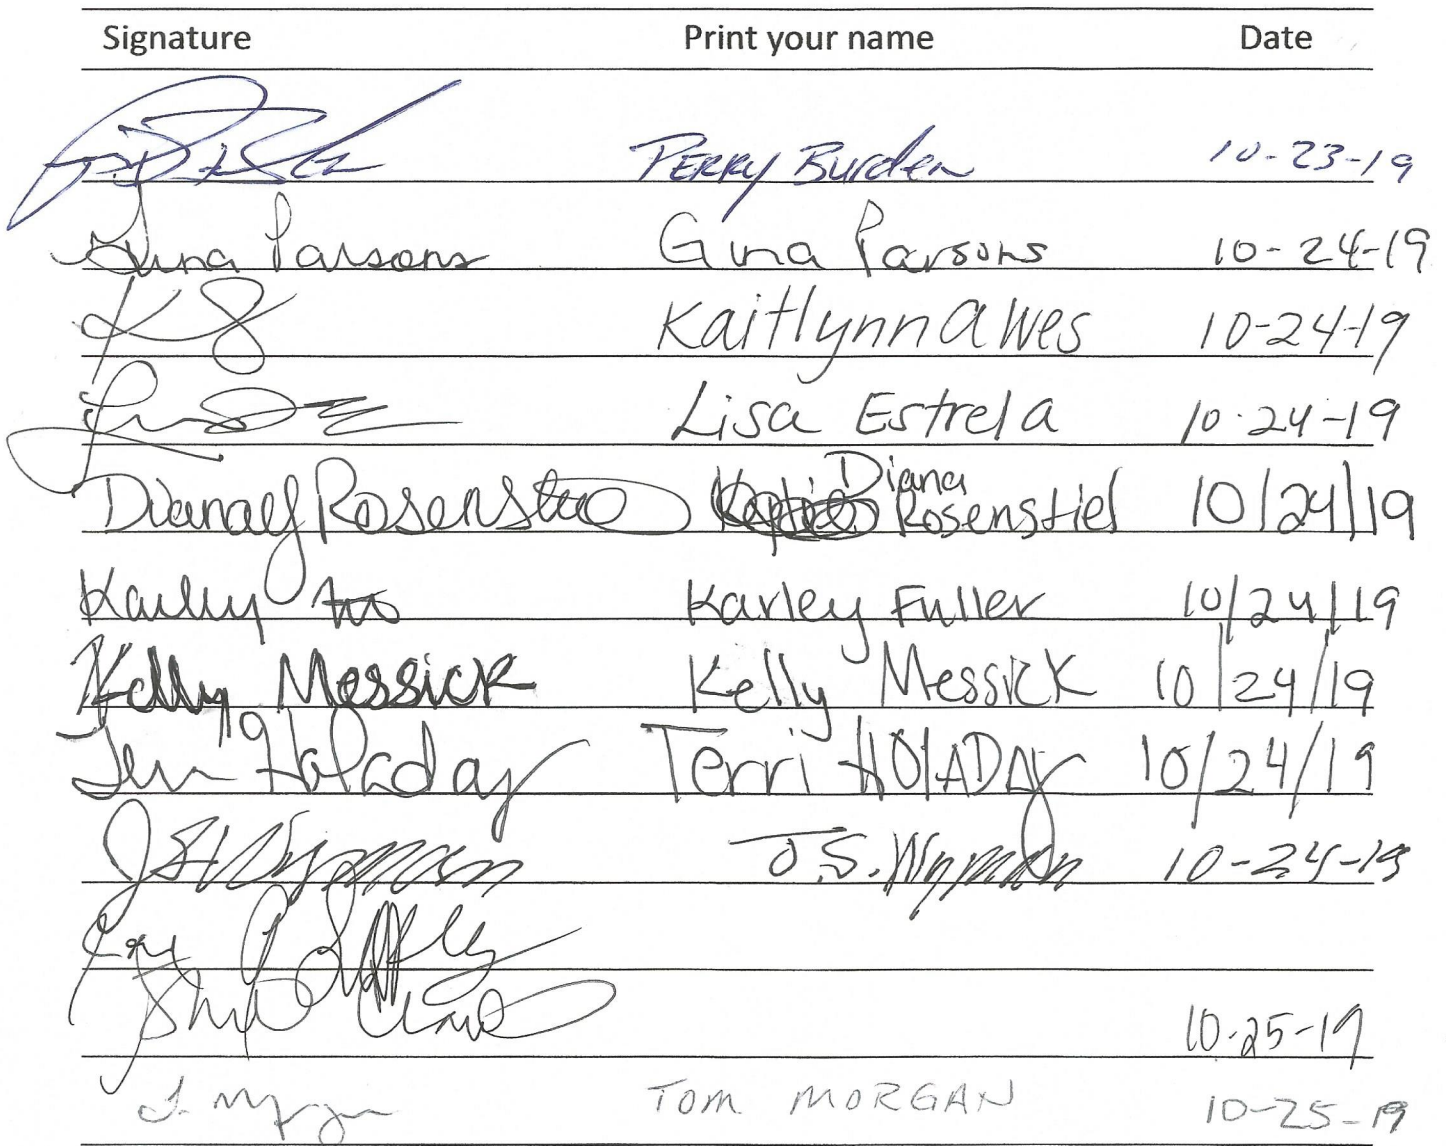 Signature Print your name Date
PERRY Burden 10-23-19
Gina Parsons Gina Parsons 10-24-19
Kaitlynn Awes 10-24-19
Lisa Estrela 10-24-19
Diana Rosenstiel Diana Rosenstiel 10/24/19
Karley Karley Fuller 10/24/19
Kelly Messick Kelly Messick 10/24/19
Terri Holaday Terri HOlADAy 10/24/19
J S Wynman J.S. Wynman 10-24-19
10-25-19
T. Morgan TOM MORGAN 10-25-19